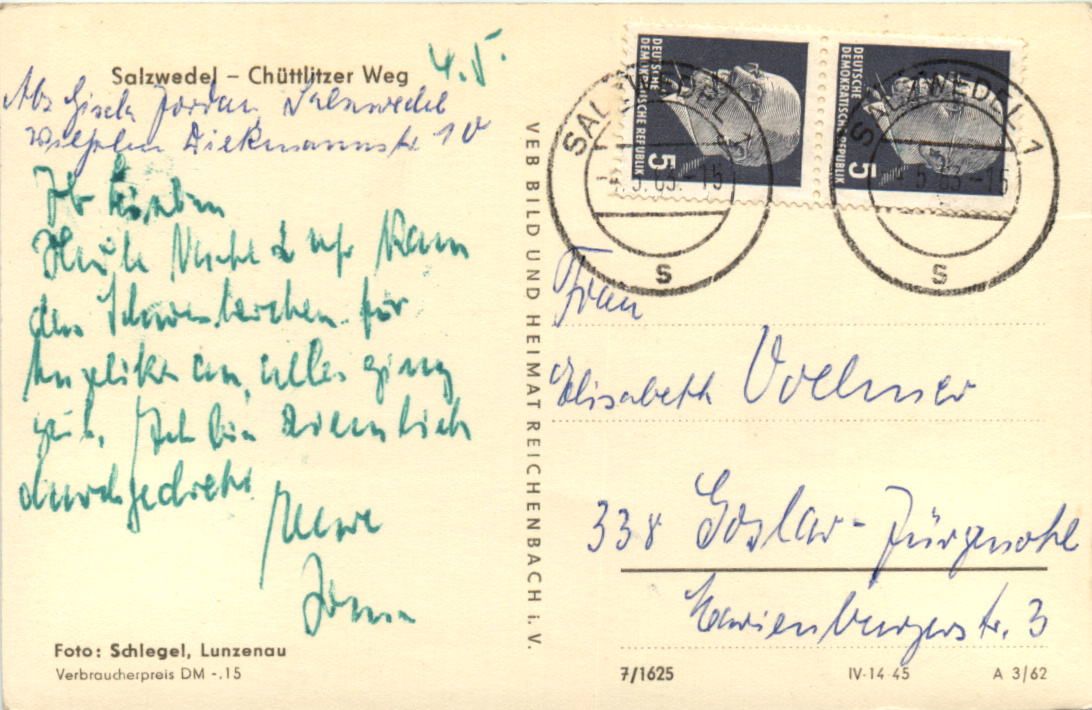 Salzwedel – Chüttlitzer Weg
4.5.
Abs Gisela Jordan, Salzwedel
Wilhelm Diekmannstr 10
Ihr Lieben
Heute Nacht 2 Uhr kam
das Schwesterchen für
Angelika an, alles ging
gut. Ich bin ziemlich
durchgedreht
Foto: Schlegel, Lunzenau
Verbraucherpreis DM -.15
VEB BILD UND HEIMAT REICHENBACH i. V.
DEUTSCHE
DEMOKRATISCHE REPUBLIK
5
DEUTSCHE
DEMOKRATISCHE REPUBLIK
5
SALZWEDEL 1
5.63.-15
s
SALZWEDEL 1
5.63.-15
s
Frau
Elisabeth Vollmer
338 Goslar-Jürgenohl
Marienburgerstr. 3
7/1625
IV-14-45
A 3/62